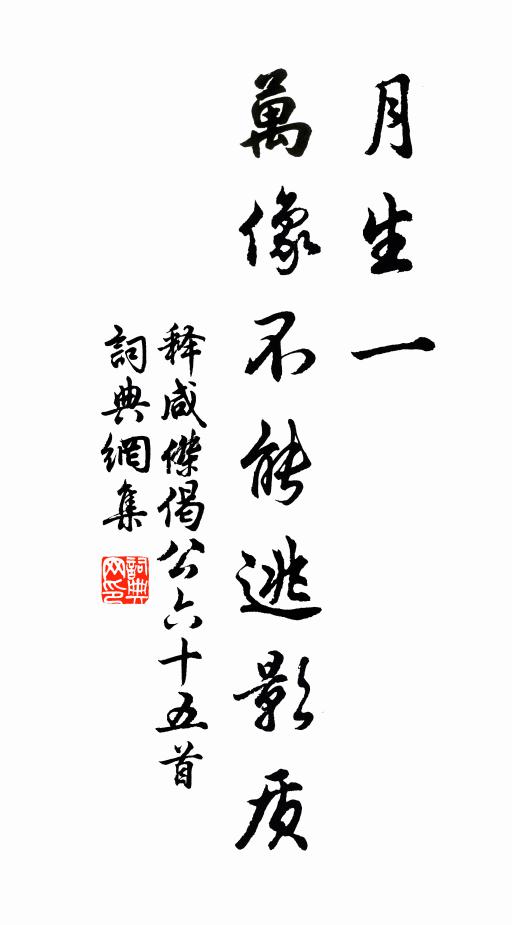 月生一
萬像不能逃影质
释咸傑偈公六十五首
詞典網集
詞典
网印